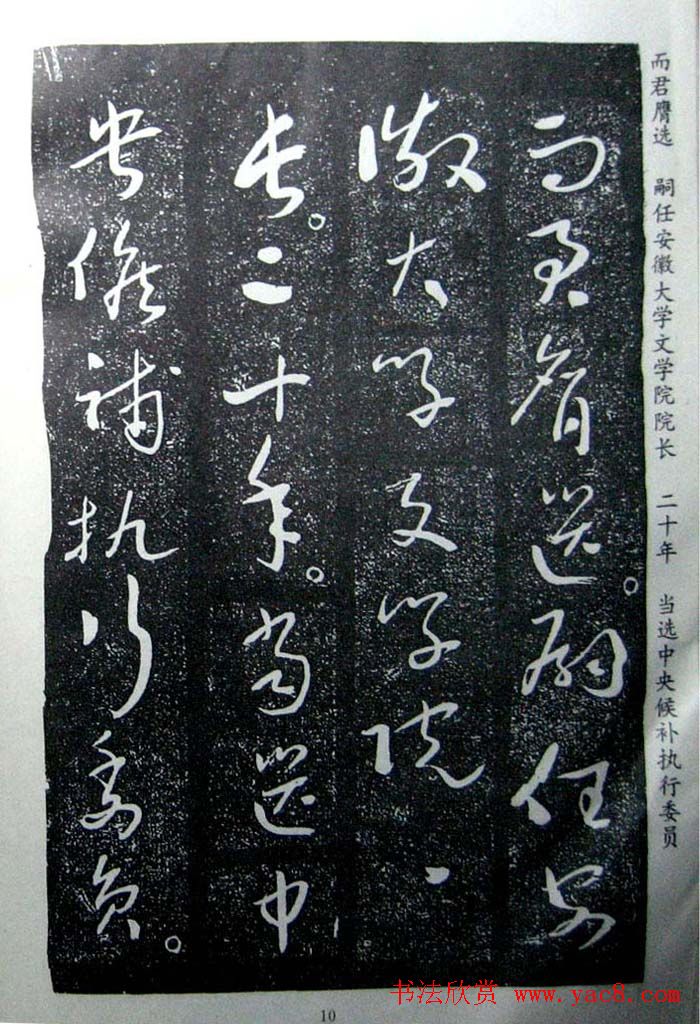 而君膺选。嗣任安
徽大学文学院〻
长。二十年。当选中
央候补执行委员。
而君膺选 嗣任安徽大学文学院院长 二十年 当选中央候补执行委员
书法欣赏 www.yac8.com
10